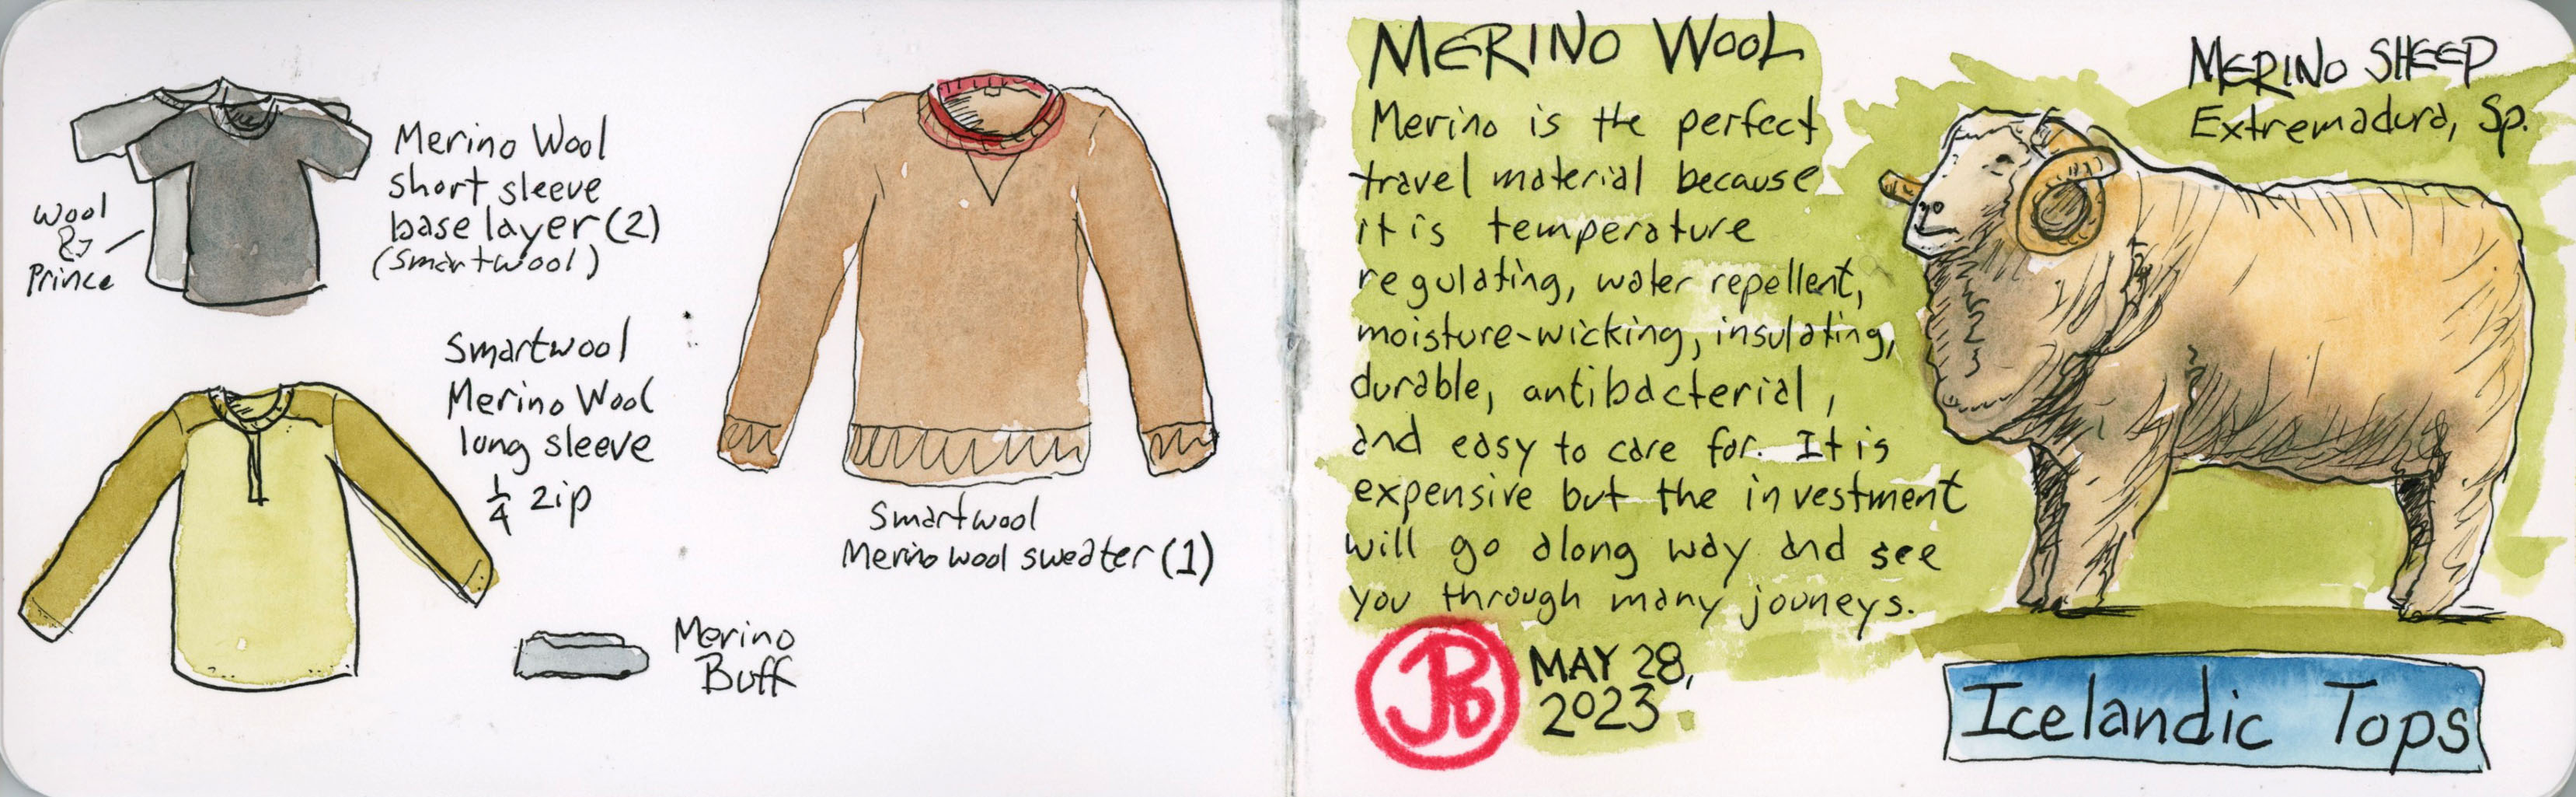 Merino Wool
short sleeve
base layer (2)
(Smartwool)
Wool
&
Prince
Smartwool
Merino Wool
long sleeve
1/4 zip
Merino
Buff
Smartwool
Merino wool sweater (1)
MERINO WOOL
Merino is the perfect
travel material because
it is temperature
regulating, water repellent,
moisture-wicking, insulating,
durable, antibacterial,
and easy to care for. It is
expensive but the investment
will go along way and see
you through many jouneys.
MERINO SHEEP
Extremadura, Sp.
JPD
MAY 28,
2023
Icelandic Tops